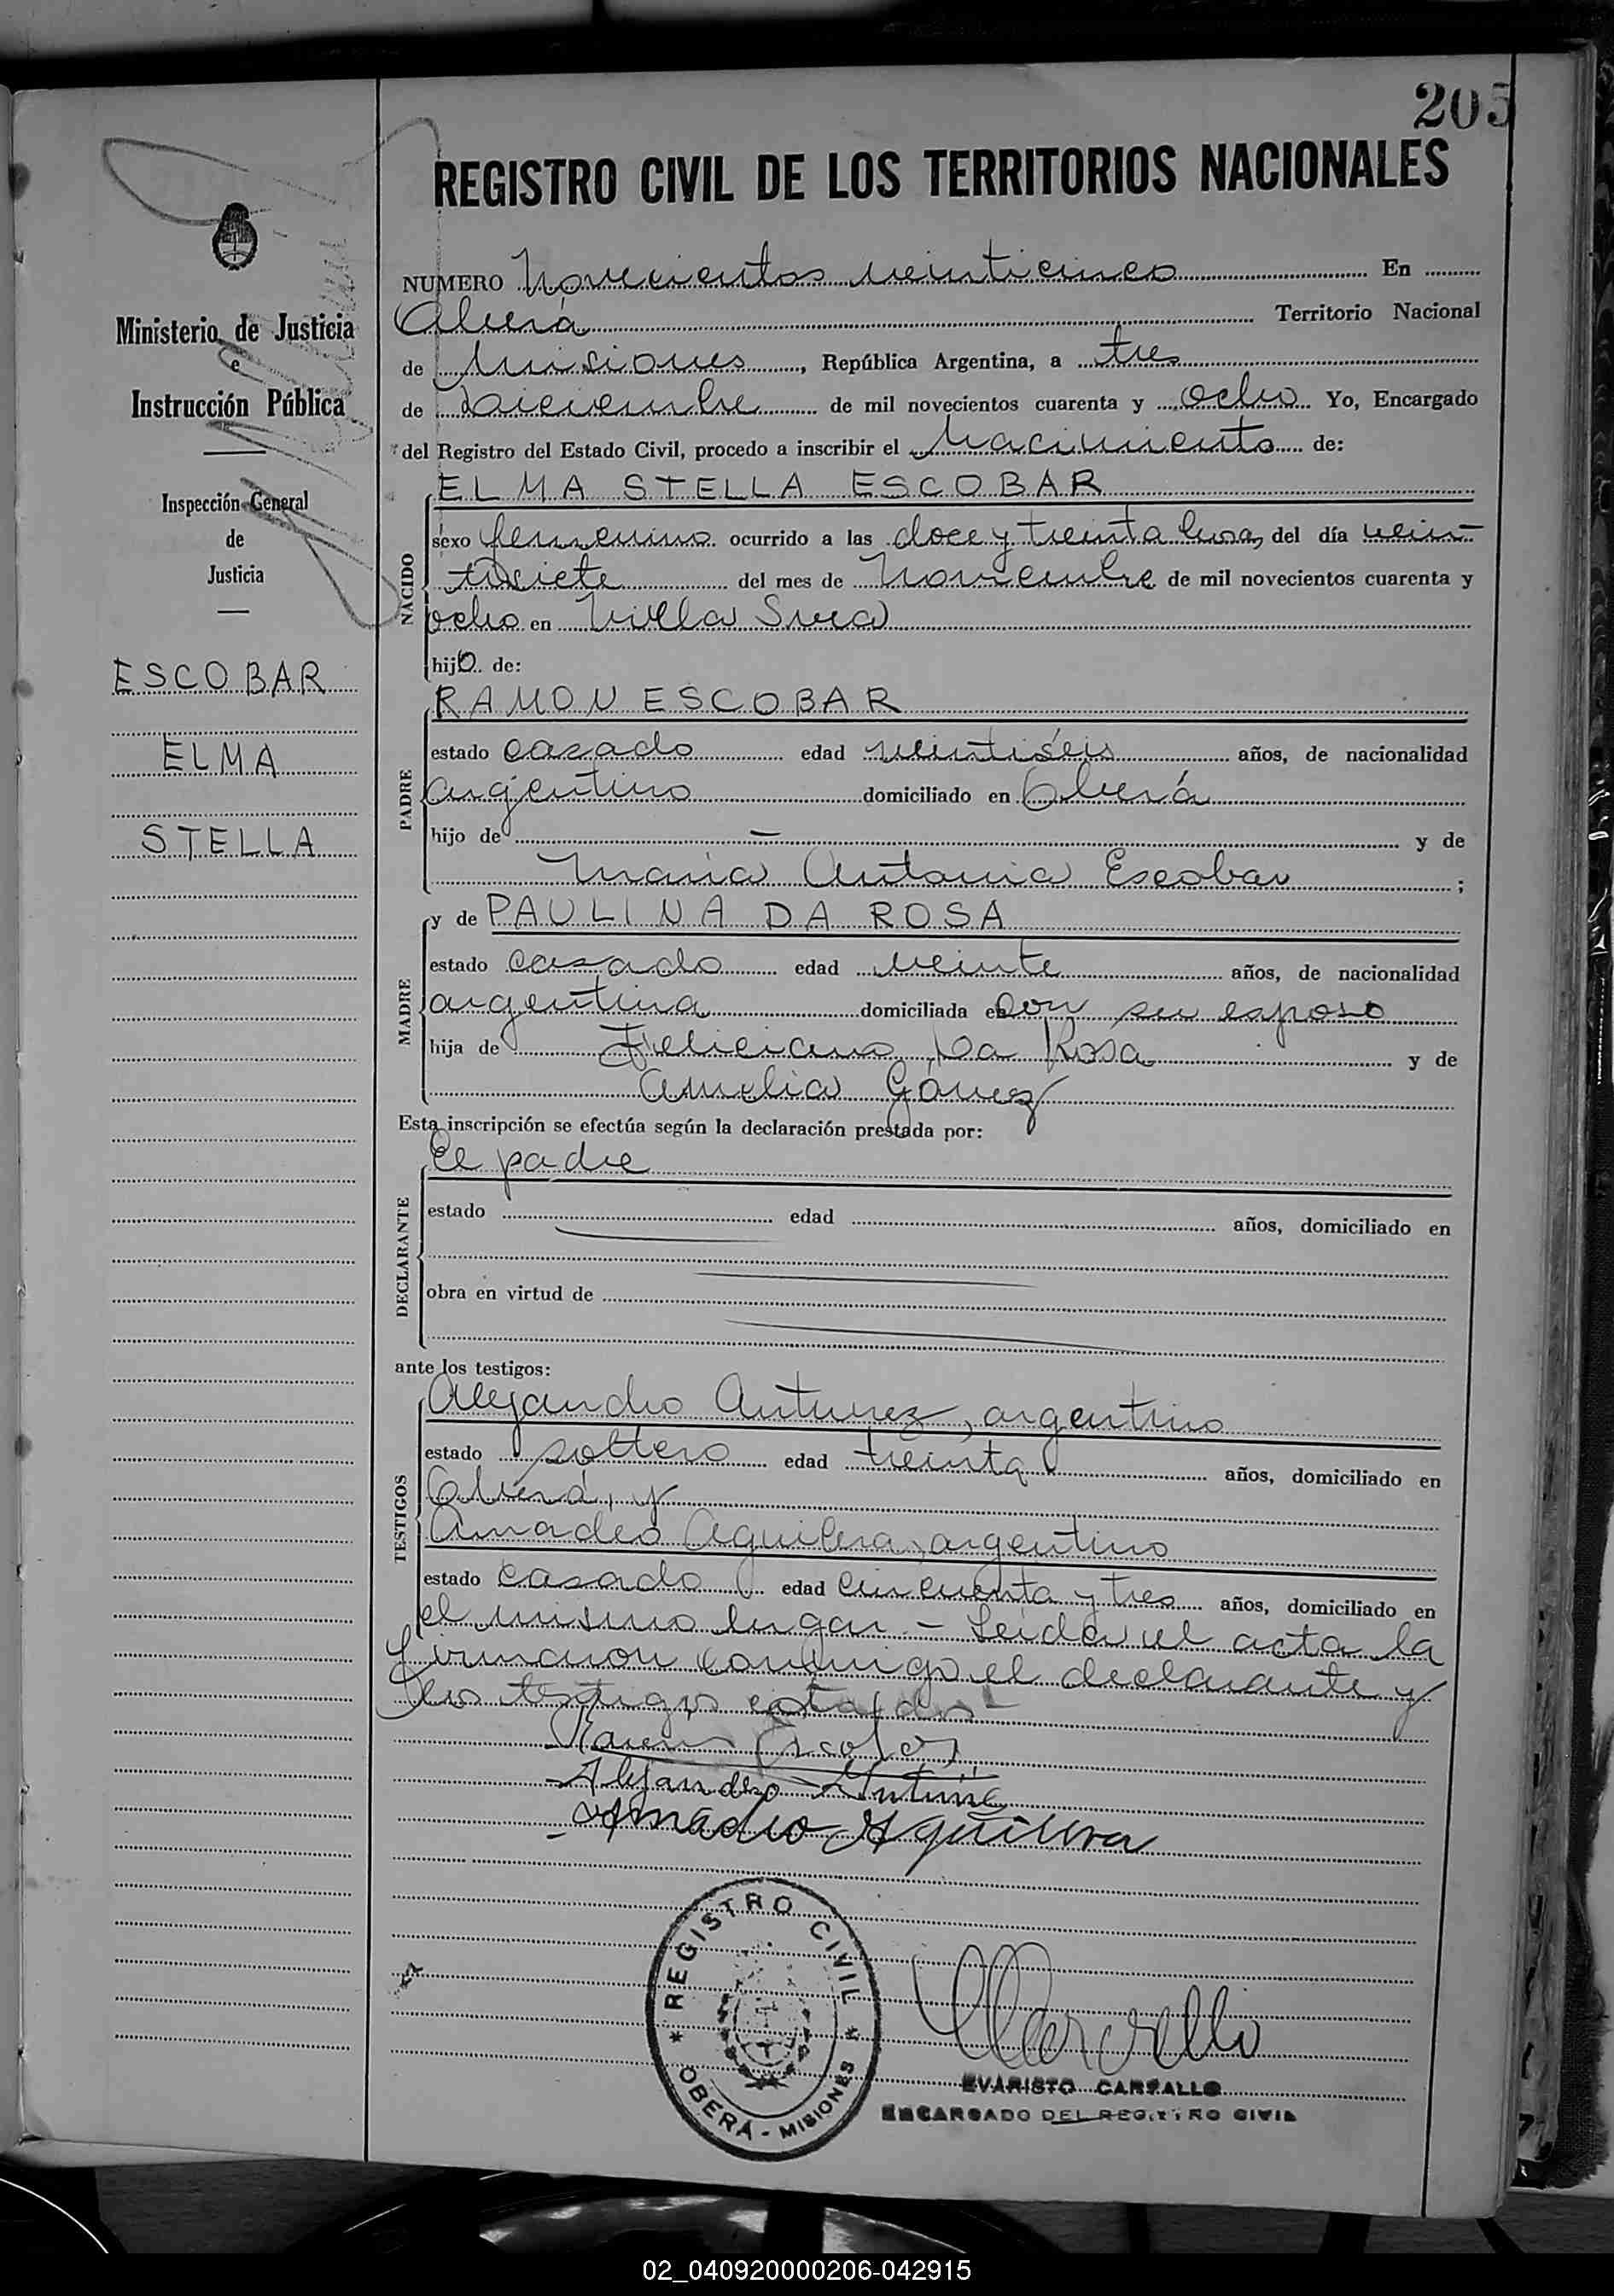 205
REGISTRO CIVIL DE LOS TERRITORIOS NACIONALES
Ministerio de Justicia
e
Instrucción Pública
Inspección General
de
Justicia
ESCOBAR
ELMA
STELLA
NUMERO Novecientos veinticinco En
Oberá Territorio Nacional
de Misiones, República Argentina, a tres
de Diciembre de mil novecientos cuarenta y ocho Yo, Encargado
del Registro del Estado Civil, procedo a inscribir el Nacimiento de:
NACIDO
ELMA STELLA ESCOBAR
sexo femenino ocurrido a las doce y treinta horas del día vein-
tisiete del mes de Noviembre de mil novecientos cuarenta y
ocho en Villa Svea
hijo de:
PADRE
RAMON ESCOBAR
estado casado edad veintiséis años, de nacionalidad
argentino domiciliado en Oberá
hijo de — y de
Maria Antonia Escobar ;
MADRE
y de PAULINA DA ROSA
estado casado edad veinte años, de nacionalidad
argentina domiciliada con su esposo
hija de Feliciano Da Rosa y de
Amelia Gómez
Esta inscripción se efectúa según la declaración prestada por:
DECLARANTE
El padre
estado edad años, domiciliado en
obra en virtud de
ante los testigos:
TESTIGOS
Alejandro Antunez, argentino
estado soltero edad treinta años, domiciliado en
Oberá, y
Amadeo Aguilera, argentino
estado casado edad cincuenta y tres años, domiciliado en
el mismo lugar. - Leída el acta la
firmaron conmigo el declarante y
los testigos citados -
Ramon Escobar
Alejandro Antune
Amadeo Aguilera
REGISTRO CIVIL
OBERÁ - MISIONES
EVARISTO CARVALLO
ENCARGADO DEL REGISTRO CIVIL
02_040920000206-042915